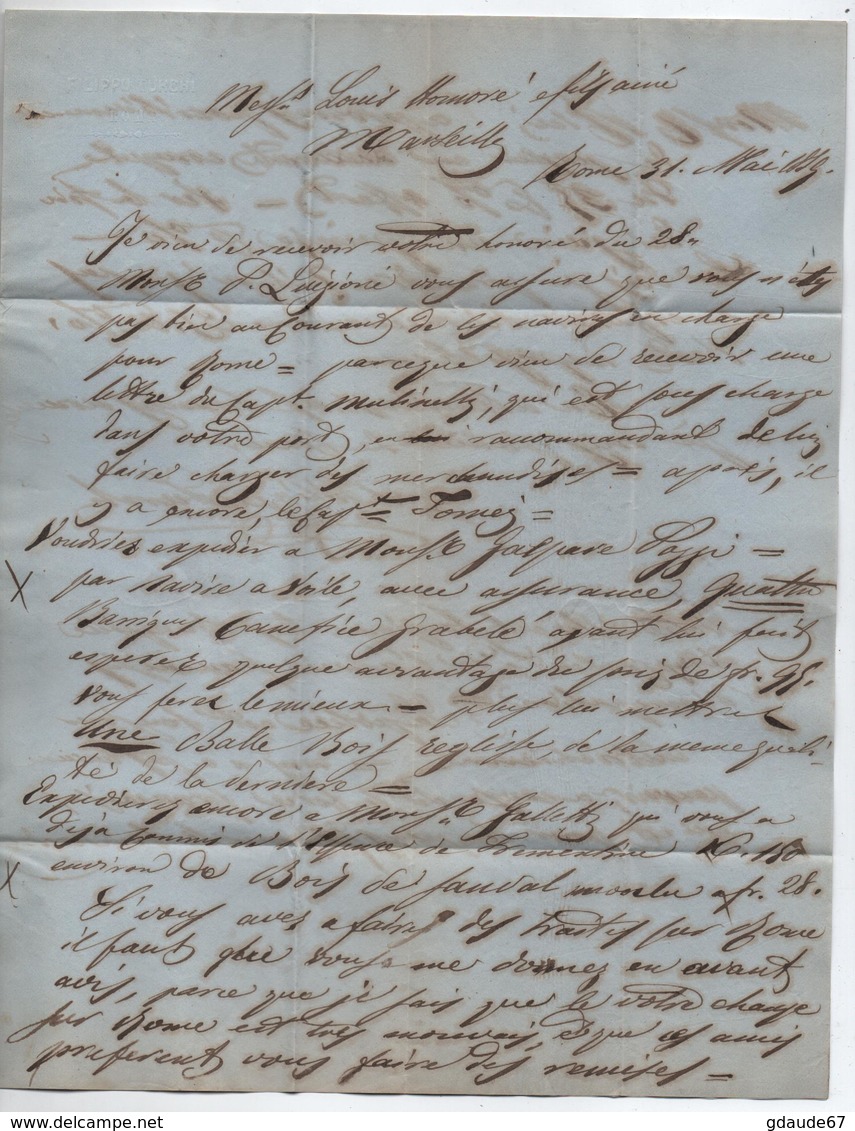 Mess.rs Louis Honoré e fils ainé
Marseille
Rome 31. Mai
Je vien de recevoir votre honoré du 28
Mons.r P. vous assure que vous n'étes
pas bien au courant de les navires en charge
pour Rome = parceque vien de recevoir une
lettre du Cap.t Mulinelli, qui est sous charge
dans votre port, en raccommandant de lui
faire charger des merchandises = après, il
y a encore, le Cap.t Tomei =
Voudriez expedier a Mons.r Gaspare Pazzi =
par navire a voile, avec assurance, Quatre
Barriques Canefice grabelé, ayant lui fait
esperer quelque avantage du prix de fr. 95.
vous ferez le mieux = plus lui mettrez
Une Balle Bois reglisse, de la meme quali-
té de la derniere =
Expedierez encore a Mons.r Galletti qui vous a
dejà commis de l'Essence de Trementine K. 150
environ de Bois de Sandal moulu a fr. 28.
Si vous avez a faire des traites sur Rome
il faut que vous me donnez en avant
avis, parce que je sais que le votre change
sur Rome est tres mouvais, e que es amis
preferent vous faire des remises =
gdaude67